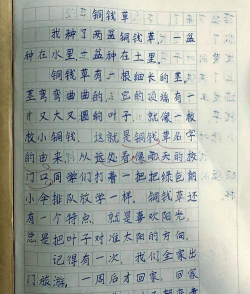 铜钱草
我种了两盆铜钱草，一盆
种在水里，一盆种在土里。
铜钱草有一根细长的茎，
茎弯弯曲曲的，它的顶端有一
片又大又圆的叶子，就像一枚
枚小铜钱。这就是铜钱草名字
的由来。从远处看像雨天的校
门口同学们打着一把把绿色的
小伞排队放学一样。铜钱草还
有一个特点，就是喜欢阳光，
总是把叶子对准太阳的方向。
记得有一次，我们全家出
门旅游，一周后才回家。回家